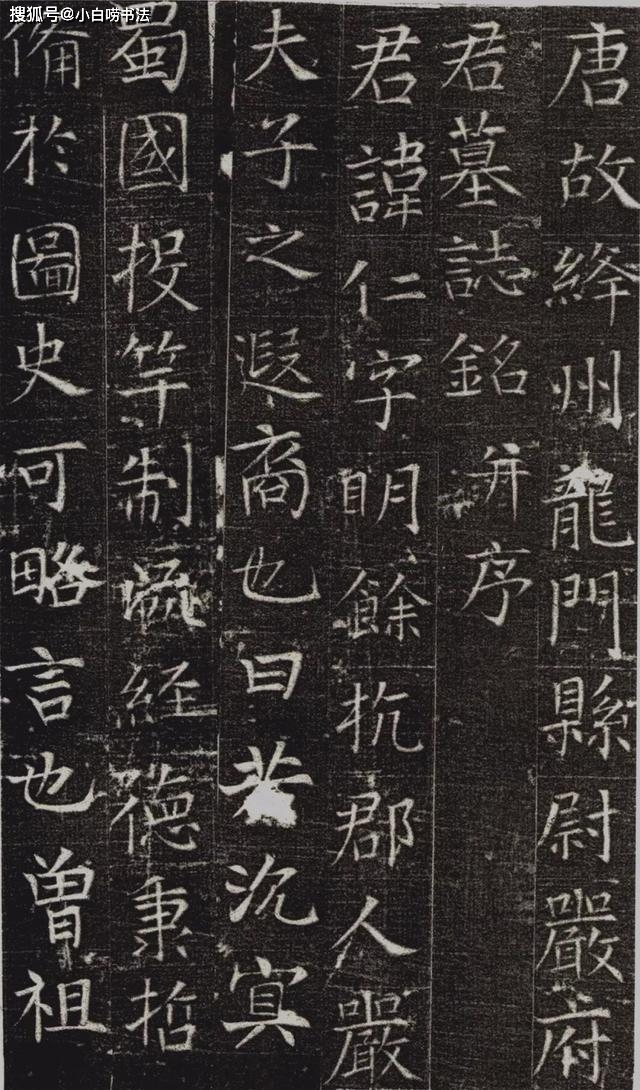 搜狐号@小白唠书法
唐故絳州龍門縣尉嚴府
君墓誌銘并序
君諱仁字明餘杭郡人嚴
夫子之遐裔也曰若沉冥
蜀國投竿制經德秉哲
備於圖史可略言也曾祖